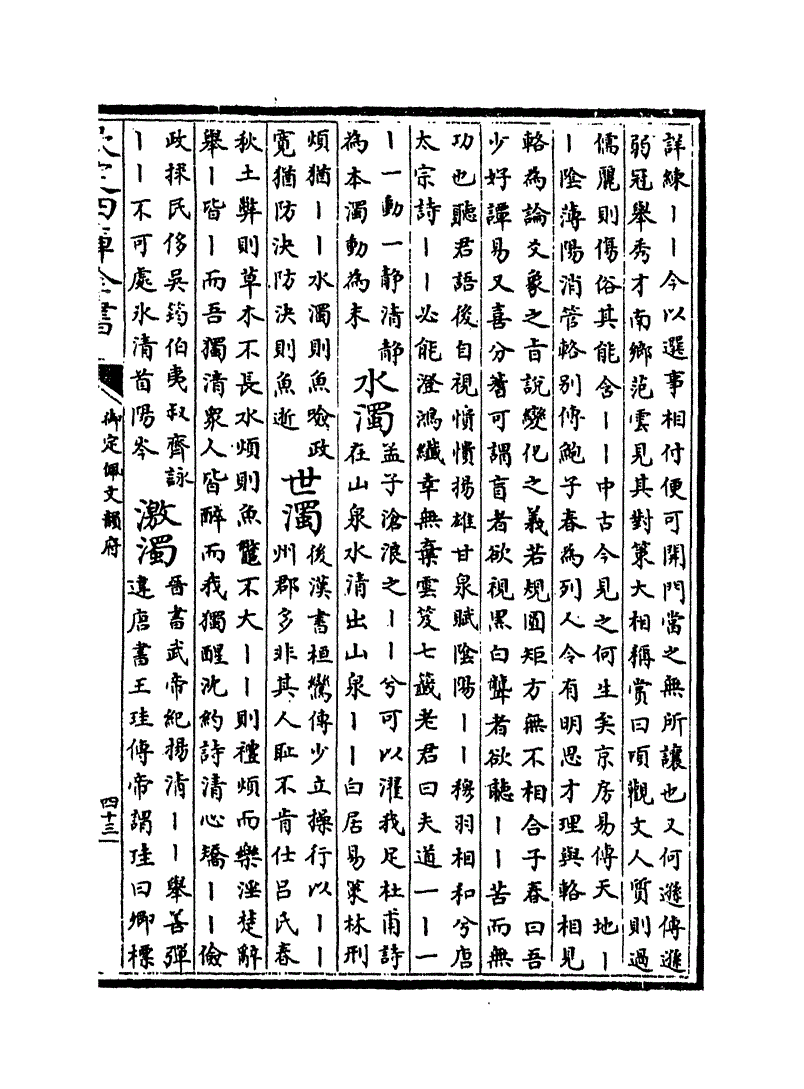 詳練丨丨今以選事相付便可開門當之無所讓也又何遜傳遜
弱冠舉秀才南鄉范雲見其對策大相稱賞曰頃觀文人質則過
儒麗則傷俗其能含丨丨中古今見之何生矣京房易傳天地丨
丨陰薄陽消管輅別傳鮑子春為列人令有明思才理與輅相見
輅為論爻象之旨說變化之義若規圓矩方無不相合子春曰吾
少好譚易又喜分蓍可謂盲者欲視黑白聾者欲聽丨丨苦而無
功也聽君語後自視憒憒揚雄甘泉賦陰陽丨丨穆羽相和兮唐
太宗詩丨丨必能澄鴻纖幸無棄雲笈七籤老君曰夫道一丨一
丨一動一静清静
為本濁動為末
水濁
孟子滄浪之丨丨兮可以濯我足杜甫詩
在山泉水清出山泉丨丨白居易策林刑
煩猶丨丨水濁則魚噞政
寛猶防決防決則魚逝
世濁
後漢書桓鸞傳少立操行以丨丨
州郡多非其人耻不肯仕吕氏春
秋土弊則草木不長水煩則魚鼈不大丨丨則禮煩而樂淫楚辭
舉丨皆丨而吾獨清衆人皆醉而我獨醒沈約詩清心矯丨丨儉
政採民侈吳筠伯夷叔齊詠
丨丨不可處氷清首陽岑
激濁
晉書武帝紀揚清丨丨舉善彈
違唐書王珪傳帝謂珪曰卿標
欽定四庫全書
御定佩文韻府
四十三